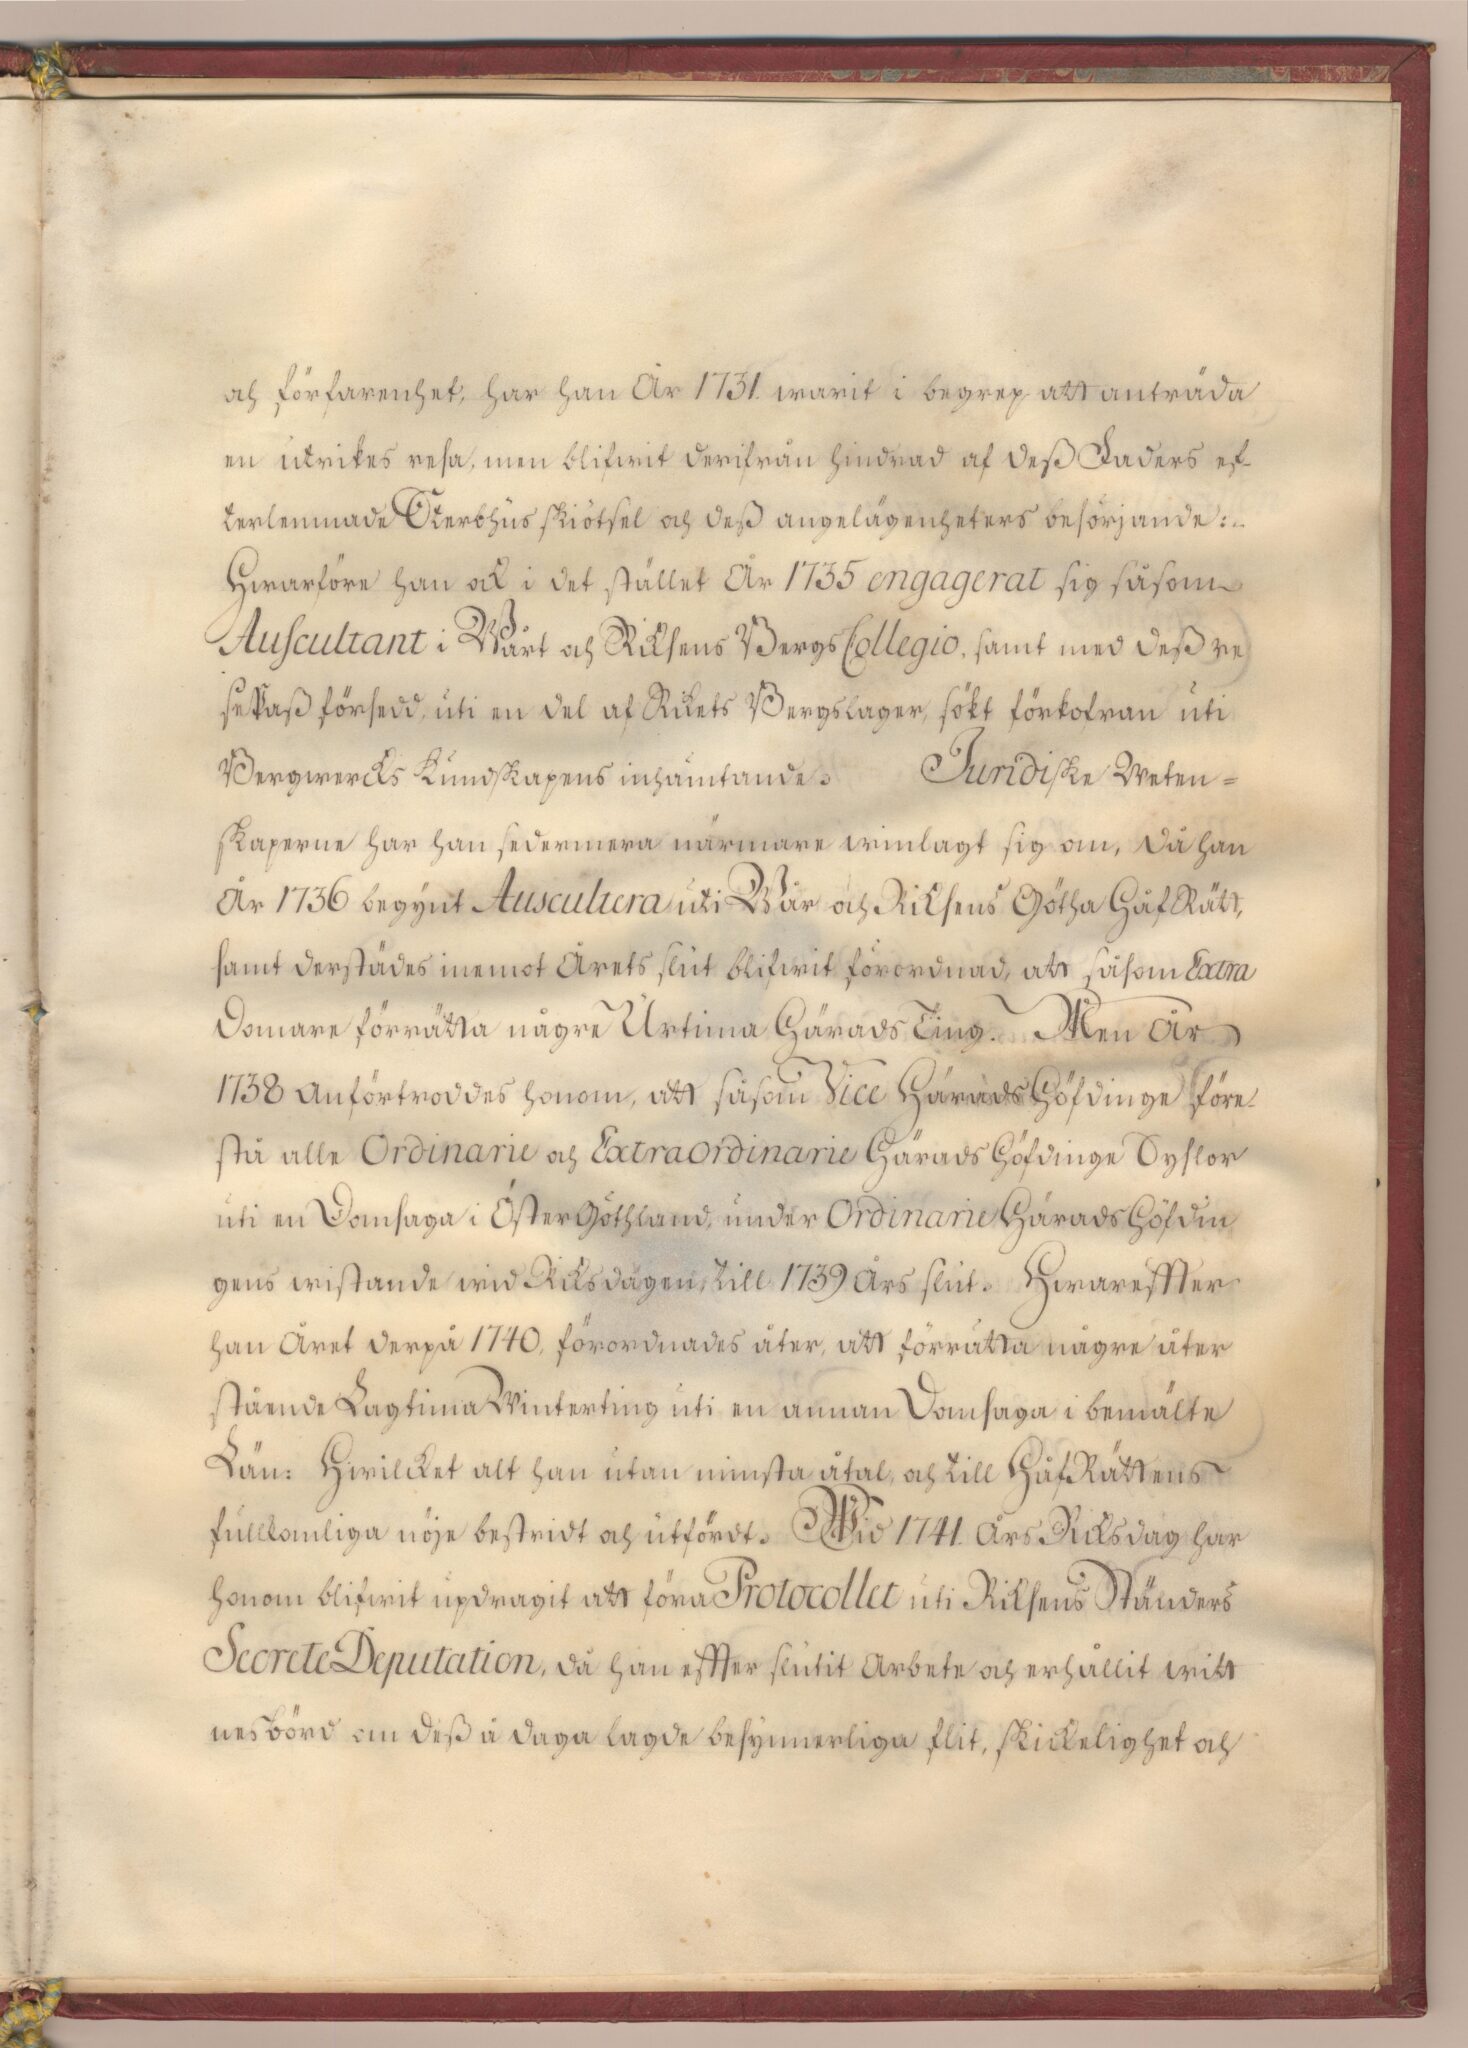 och förfarenhet, har han År 1731. warit i begrep att anträda
en utrikes resa, men blifwit derifrån hindrad af deß Faders ef-
terlemnade Sterbhus skiötsel och deß angelägenheters besörjande:
Hwarföre han ock i det stället År 1735 engagerat sig såsom
Auscultant i Wårt och Riksens BergsCollegio, samt med deß re
sePaß försedd, uti en del af Rikets Bergslager, sökt förkofran uti
Bergwercks Kundskapens inhämtande. Juridiske Weten=
skaperne har han sedermera närmare winlagt sig om, då han
År 1736 begynt Auscultera uti Wår och Riksens Götha HåfRätt,
samt derstädes inemot Årets slut blifwit förordnad, att såsom Extra
Domare förrätta någre Urtima Härads Ting. Men År
1738 anförtroddes honom, att såsom Vice HäradsHöfdinge före-
stå alle Ordinarie och Extraordinarie HäradsHöfdinge Syslor
uti en Domsaga i ÖsterGöthland, under Ordinarie HäradsHöfdin
gens wistande wid Riksdagen, till 1739 Års slut. Hwareffter
han Året derpå 1740, förordnades åter, att förrätta någre åter
stående Lagtima Winterting uti en annan Domsaga i bemälte
Län: Hwilcket alt han utan minsta åtal, och till HåfRättens
fullkomliga nöje bestridt och utfördt. Wid 1741. Års Riksdag har
honom blifwit updragit att föra Protocollet uti Riksens Ständers
Secrete Deputation, då han effter slutit Arbete och erhållit witt
nesbörd om deß å daga lagde besynnerliga flit, skickelighet och